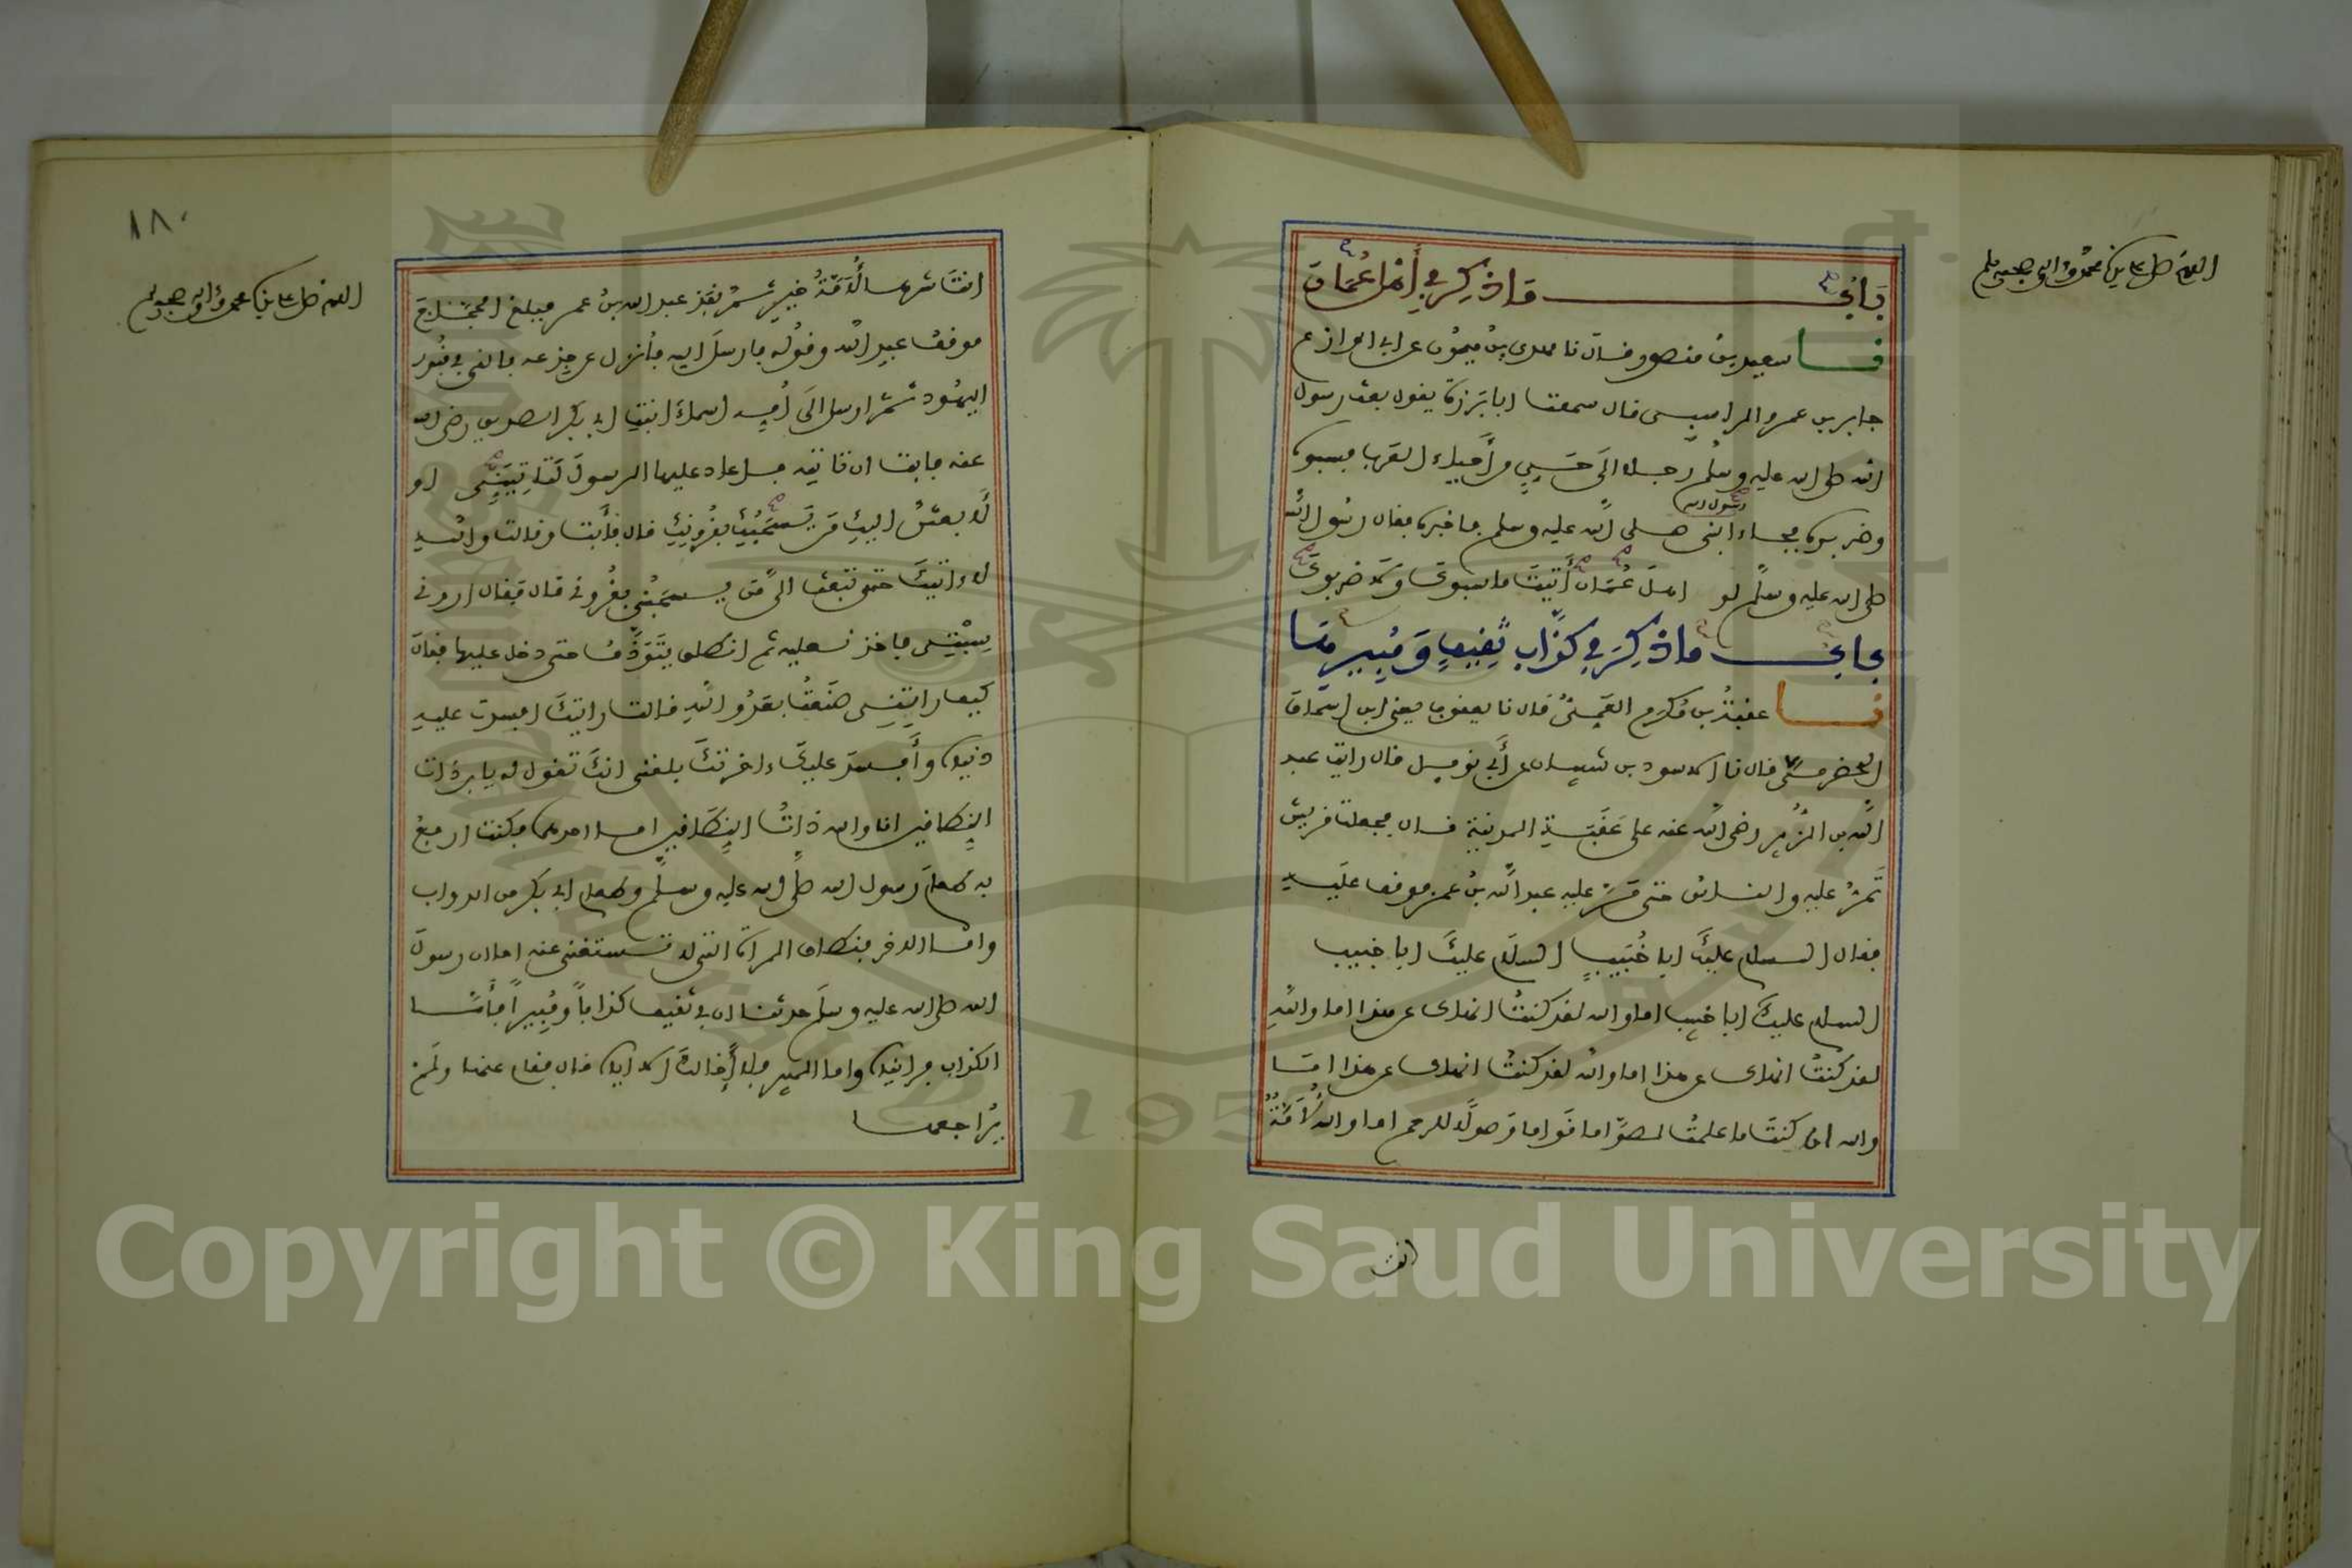 اللهم صل على سيدنا محمد وآله وصحبه وسلم
بَابُ مَا ذُكِرَ فِي أَهْلِ عُمَانَ
نا سعيد بن منصور قال نا مهدى بن ميمون عن ابى الوازع
جابر بن عمرو الراسبى قال سمعت ابا برزة يقول بعث رسول
الله صلى الله عليه وسلم رجلا الى حَيٍّ من أحياء العرب فسبوه
وضربوه فجاء الى رسول الله صلى الله عليه وسلم فاخبره فقال رسول الله
صلى الله عليه وسلم لو اهل عُمَان أَتيتَ ما سبوكَ ولا ضربوكَ
باب ما ذُكِرَ فِي كذّاب ثقيفٍ وَمُبِيرِهَا
نا عقبة بن مُكرم العَمِّىُّ قال نا يعقوب يعنى ابن اسحاق
الحضرمىُّ قال نا الاسود بن شيبان عن أَبي نوفل قال رايت عبد
الله بن الزُّبير رضى الله عنه على عَقَبَةِ المدينة قال فجعلت قريش
تَمرُّ عليه والناس حتى مَرَّ عليه عبد الله بن عمر فوقف عليه
فقال السلام عليكَ ابا خُبَيبٍ السلام عليكَ ابا خبيب
السلام عليكَ ابا خبيب اما والله لقد كنتُ انهاك عن هذا اما واللهِ
لقد كنتُ انهاك عن هذا اما والله لقد كنتُ انهاك عن هذا امَا
والله ان كنتَ ما علمتُ صوّاما قوّاما وَصولاً للرحم اما والله لأُمَّةٌ
انت
١٨٠
اللهم صل على سيدنا محمد وآله وصحبه وسلم
انتَ شرها لَأُمَّةُ خيرٍ ثم نفذ عبد الله بنُ عمر فبلغ الحجّاجَ
موقفُ عبد الله وقولُه فارسلَ اليه فأُنزل عن جِذعه فالقى في قبُور
اليهُود ثم ارسل الَى أمه اسماءَ ابنتِ ابى بكر الصديق رضى الله
عنه فابت ان تاتيه فاعاد عليها الرسولَ لَتَاتِيَنِّى او
لَأَبعثنَّ اليكِ مَن يَسحَبُكِ بقُرونِكِ قال فأَبت وقالت واللهِ
لا اتيكَ حتى تبعث الىَّ مَن يسحَبُنى بقُرونى قال فقال ارونى
سِبْتَىَّ فاخذ نعليه ثم انطلق يَتَوَذَّفُ حتى دخل عليها فقال
كيف رايتِنِى صَنَعتُ بعدُوِّ اللهِ قالت رايتكَ افسدت عليهِ
دنياه وأَفسدَ عليكَ اخرتكَ بلغنى انكَ تقول له يا بن ذات
النِّطاقين انا والله ذاتُ النِّطَاقين اما احدهما فكنت ارفعُ
به طعامَ رسول الله صلى الله عليه وسلم وطعام ابى بكر من الدواب
واما الاخر فنطاق المراة التى لا تستغنى عنه اما ان رسولَ
الله صلى الله عليه وسلم حدثنا ان في ثقيف كذاباً ومُبِيراً فأَمّا
الكذاب فرايناه واما المبير فلا إِخالكَ الا اياه قال فقام عنها ولَم
يُراجعها
Copyright © King Saud University
195